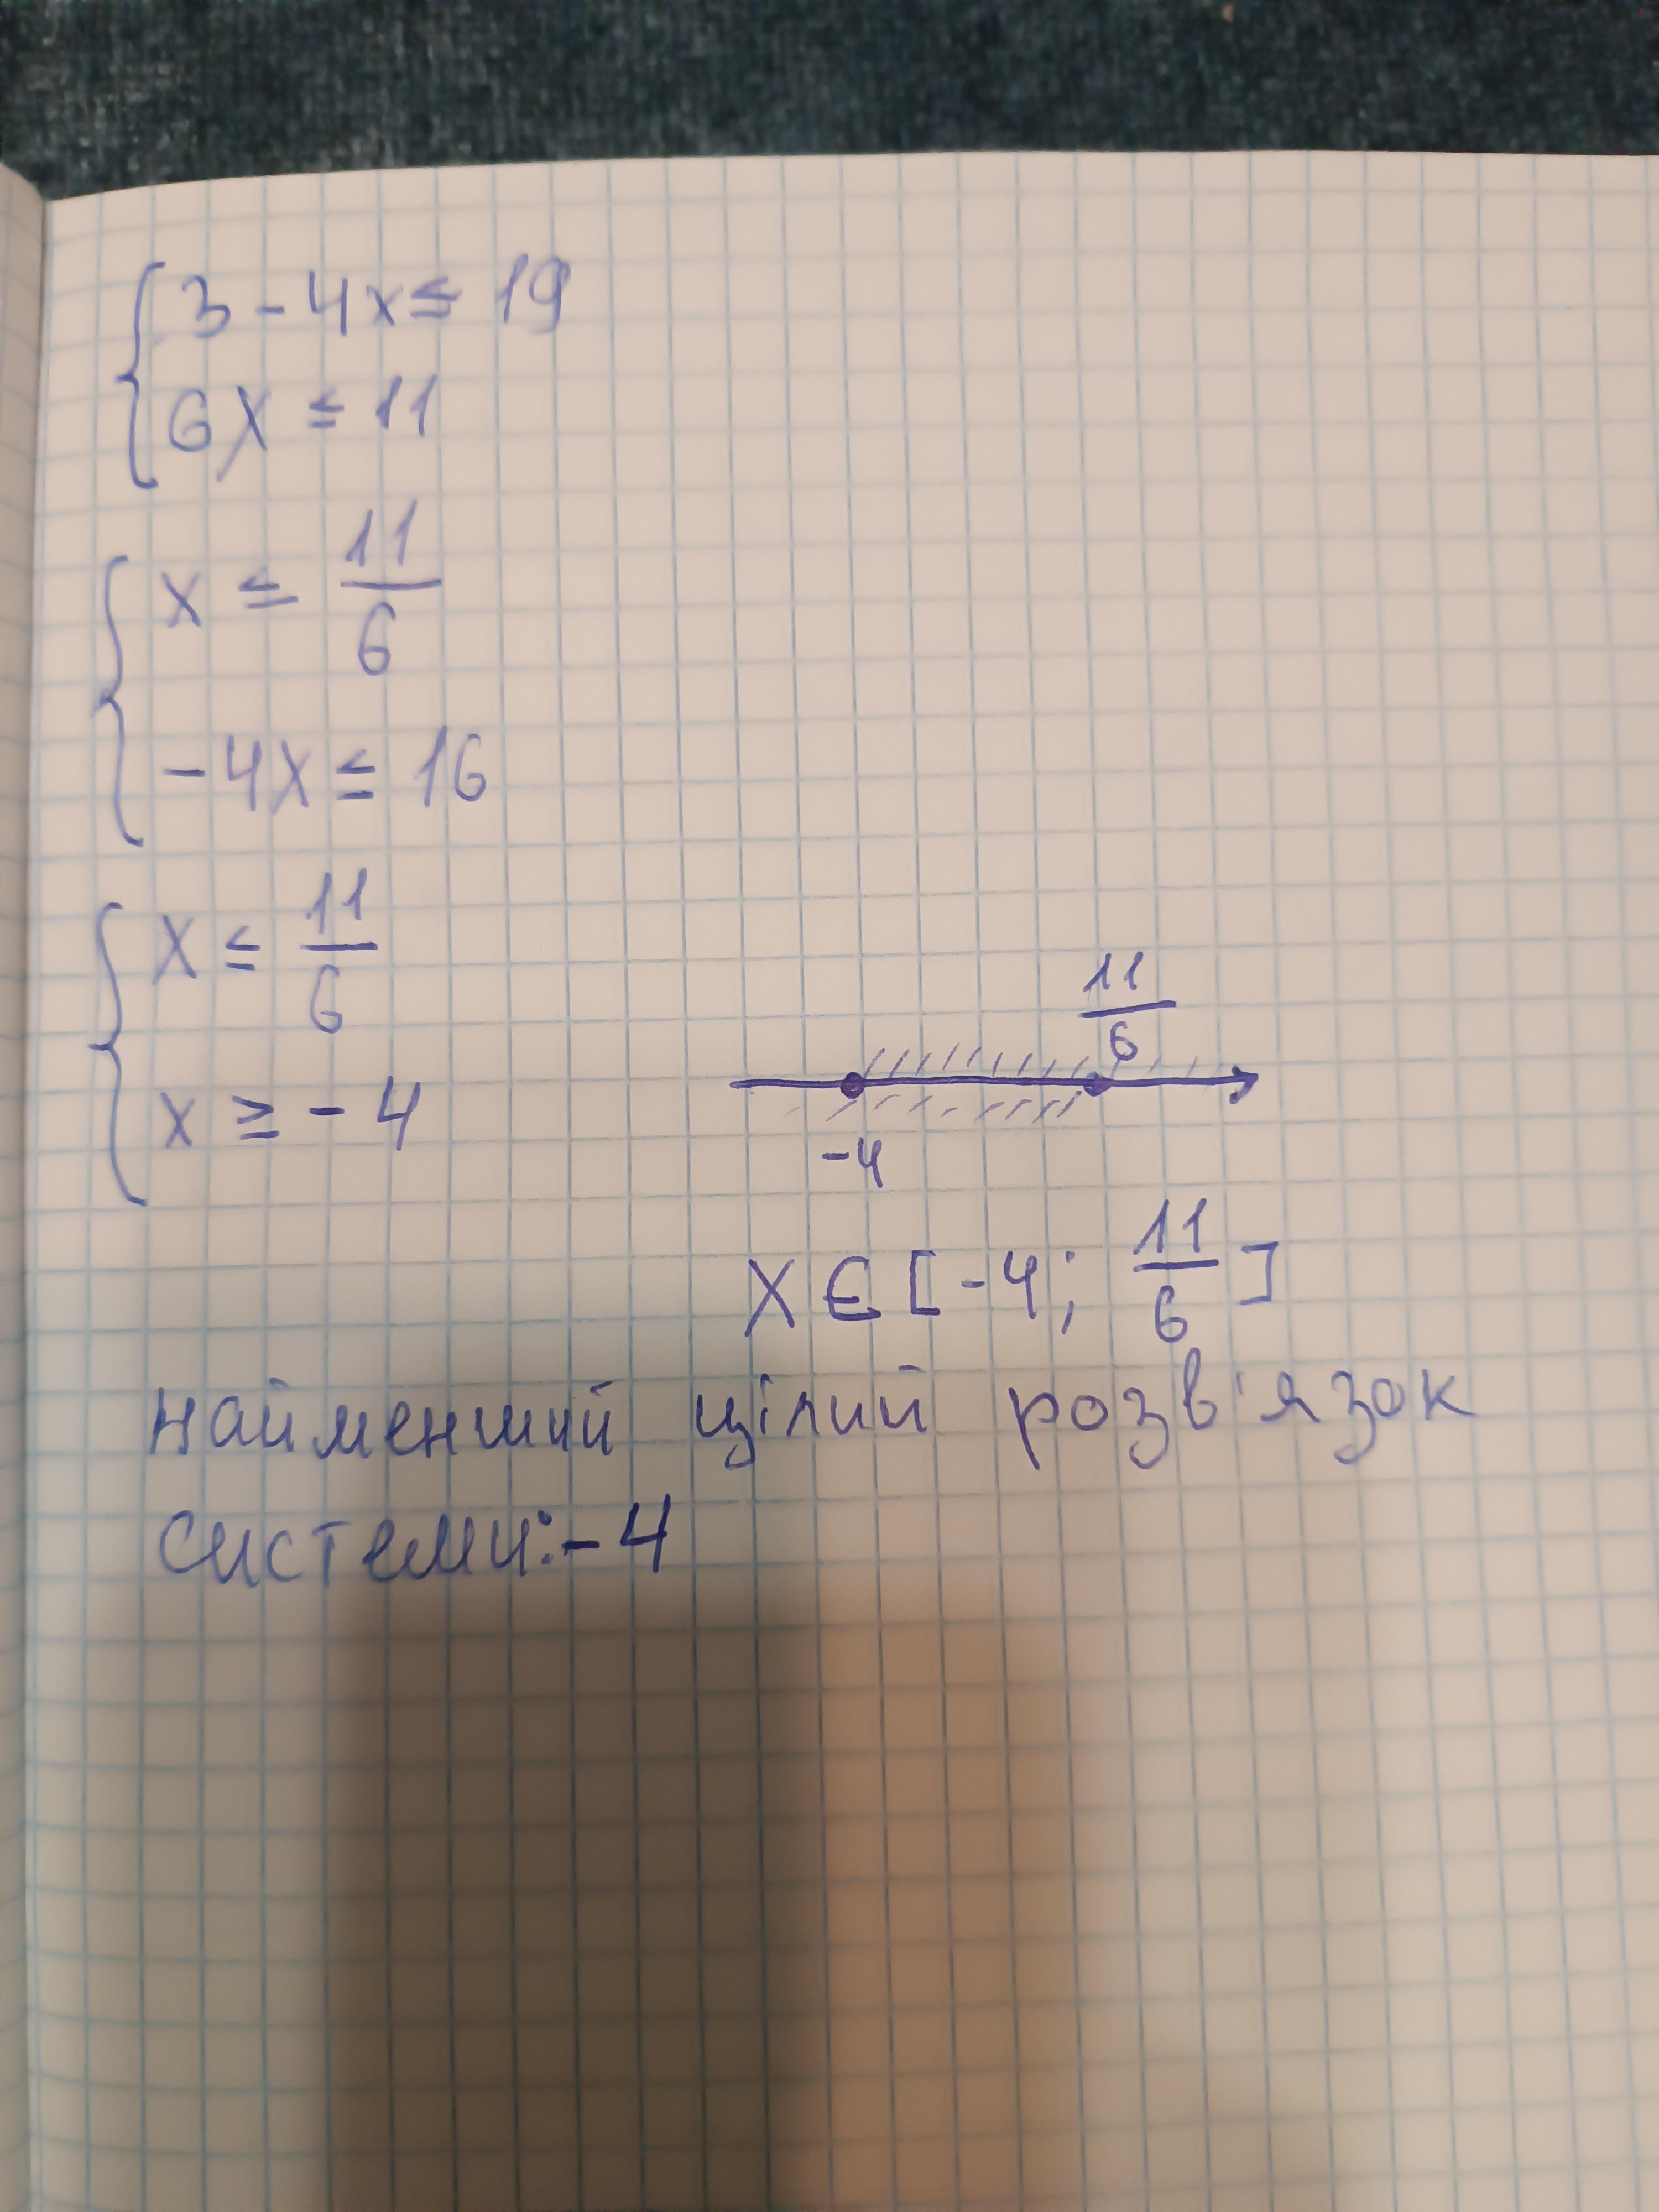 { 3 - 4x ≤ 19
6x ≤ 11
{ x ≤ 11/6
-4x ≤ 16
{ x ≤ 11/6
x ≥ -4
11/6
-4
x є [-4; 11/6]
найменший цілий розв'язок
системи: -4